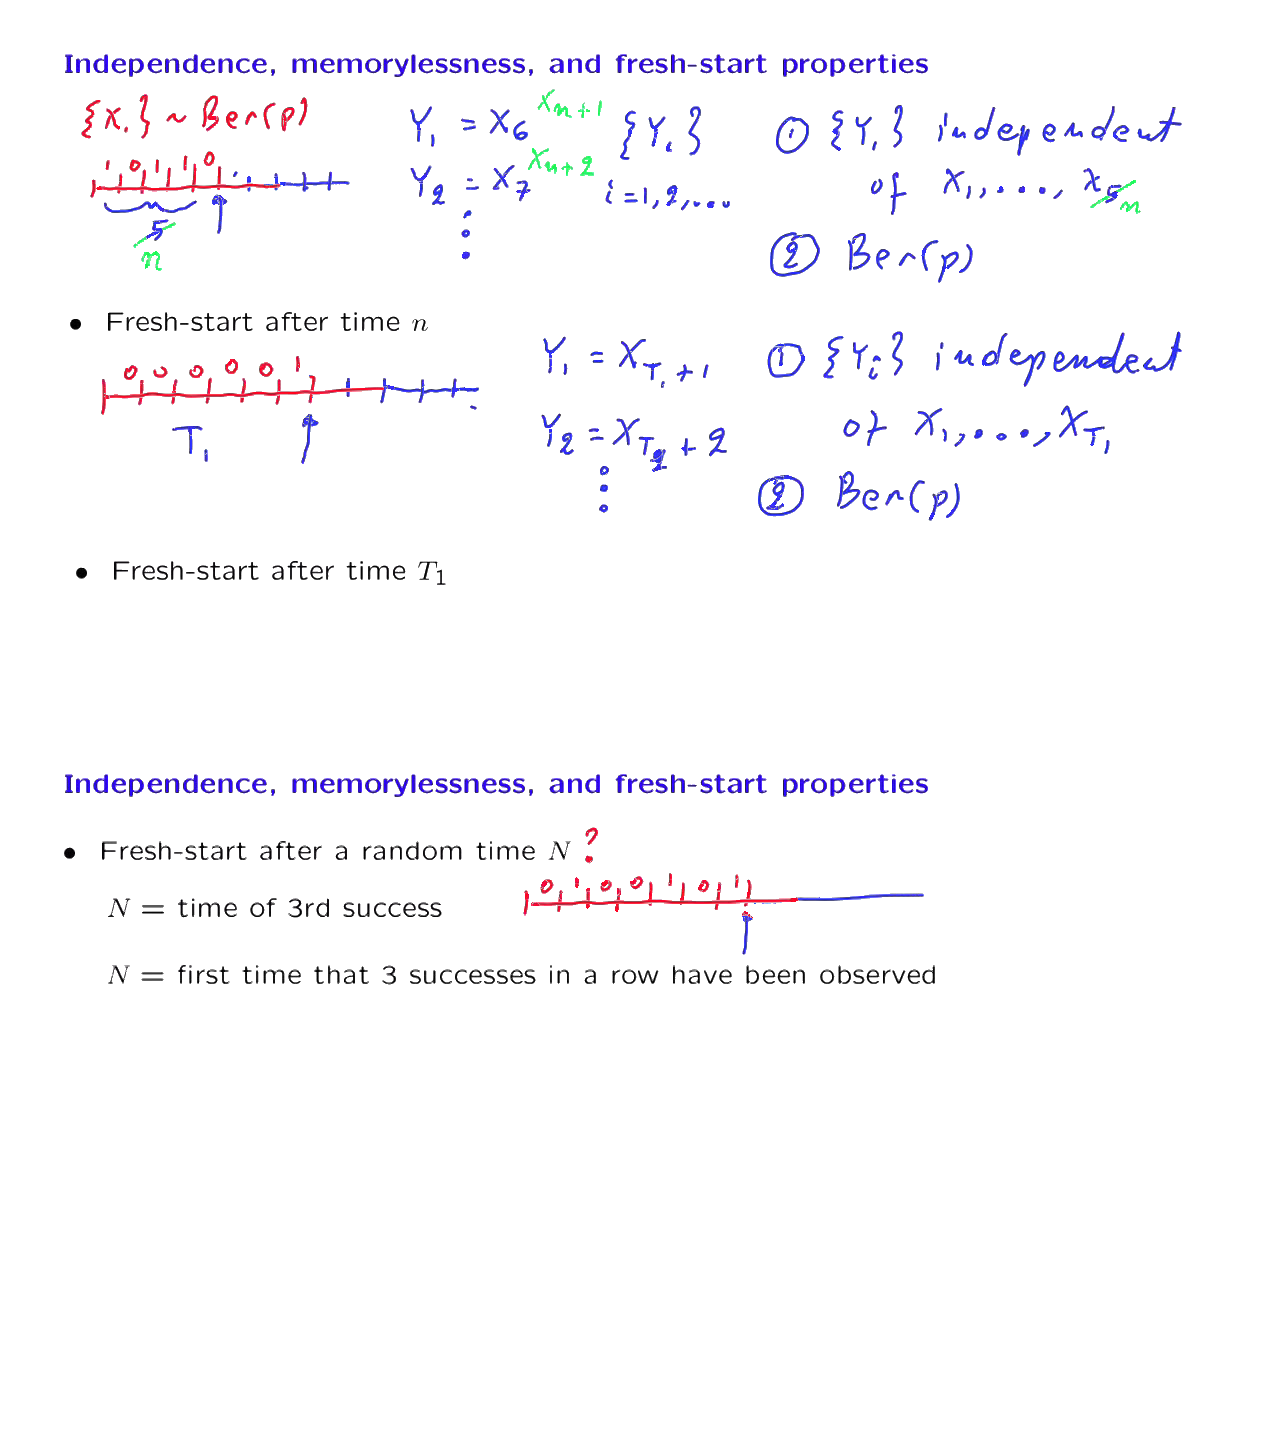 Independence, memorylessness, and fresh-start properties
{Xᵢ} ~ Ber(p)
1 0 1 1 0
5 n
Y₁ = X₆ Xₙ₊₁
Y₂ = X₇ Xₙ₊₂
{Yᵢ}
i = 1, 2, ...
① {Yᵢ} independent
of X₁, ..., X₅ n
② Ber(p)
• Fresh-start after time n
0 0 0 0 0 1
T₁
Y₁ = X_{T₁+1}
Y₂ = X_{T₂+2}
① {Yᵢ} independent
of X₁, ..., X_{T₁}
② Ber(p)
• Fresh-start after time T₁
Independence, memorylessness, and fresh-start properties
• Fresh-start after a random time N ?
N = time of 3rd success
0 1 0 0 1 0 1
N = first time that 3 successes in a row have been observed